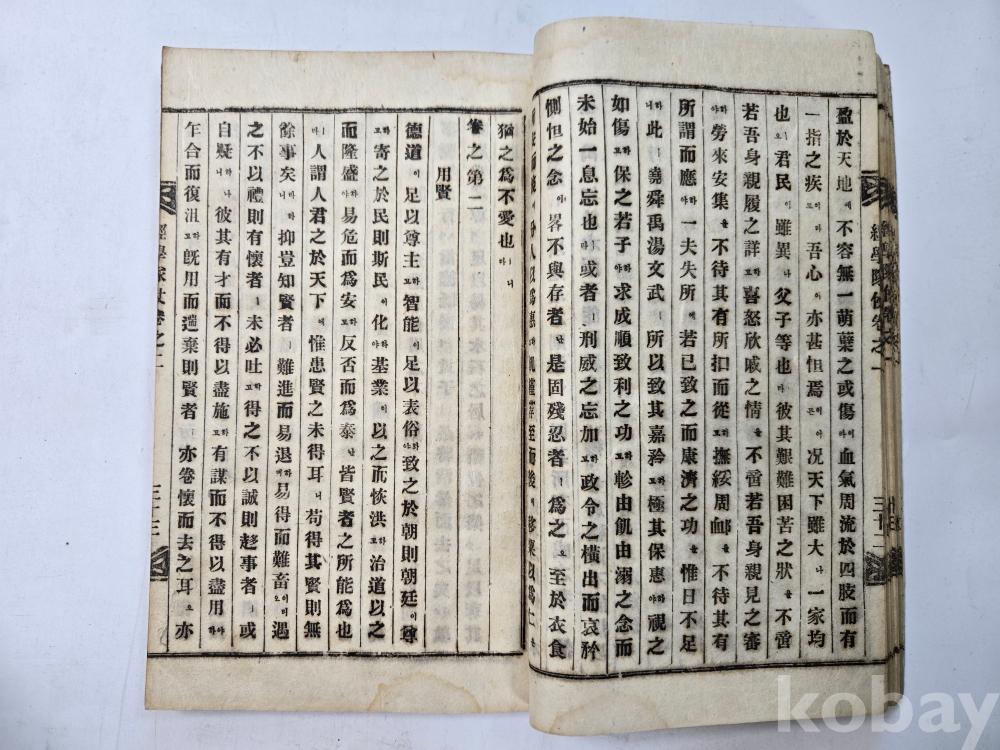 盈於天地에不容無一萌蘖之或傷이라血氣周流於四肢而有
一指之疾이라도吾心이亦甚怛焉이어든况天下雖大나一家均
也ㅣ오君民이雖異나父子等也라彼其艱難困苦之狀을不啻
若吾身親履之詳하고喜怒欣戚之情을不啻若吾身親見之審
하야勞來安集을不待其有所扣而從하고撫綏周卹을不待其有
所謂而應하야一夫失所에若已致之而康濟之功을惟日不足
하니此ㅣ堯舜禹湯文武ㅣ所以致其嘉矜하고極其保惠하야視之
如傷하고保之若子하야求成順致利之功하고軫由飢由溺之念而
未始一息忘也라或者ㅣ刑威之忘加하고政令之橫出而哀矜
惻怛之念이畧不與存者난是固殘忍者의爲之오至於衣食
猶之爲不愛也ㅣ라니
卷之第二
用賢
德道이足以尊主하고智能이足以表俗하야致之於朝則朝廷이尊
하고寄之於民則斯民이化하야基業이以之而恢洪하고治道以之
而隆盛하야易危而爲安하고反否而爲泰난皆賢者之所能爲也
ㅣ라人謂人君之於天下에惟患賢之未得耳니苟得其賢則無
餘事矣라하니抑豈知賢者ㅣ難進而易退하며易得而難畜이리오遇
之不以禮則有懷者ㅣ未必吐하고得之不以誠則趍事者ㅣ或
自疑하나니彼其有才而不得以盡施하고有謀而不得以盡用하야
乍合而復沮하고旣用而遄棄則賢者ㅣ亦卷懷而去之耳오亦
經學隊仗卷之一
三十二
經學隊仗卷之二
三十三
kobay